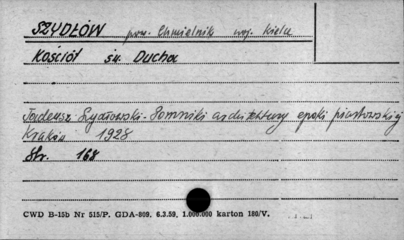 SZYDŁÓW pow. Chmielnik woj. Kielce
Kościół św. Ducha
Tadeusz Szydłowski - Pomniki architektury epoki piastowskiej
Kraków 1928
Str. 168
CWD B-15b Nr 515/P. GDA-809. 6.3.59. 1.000.000 karton 180/V.